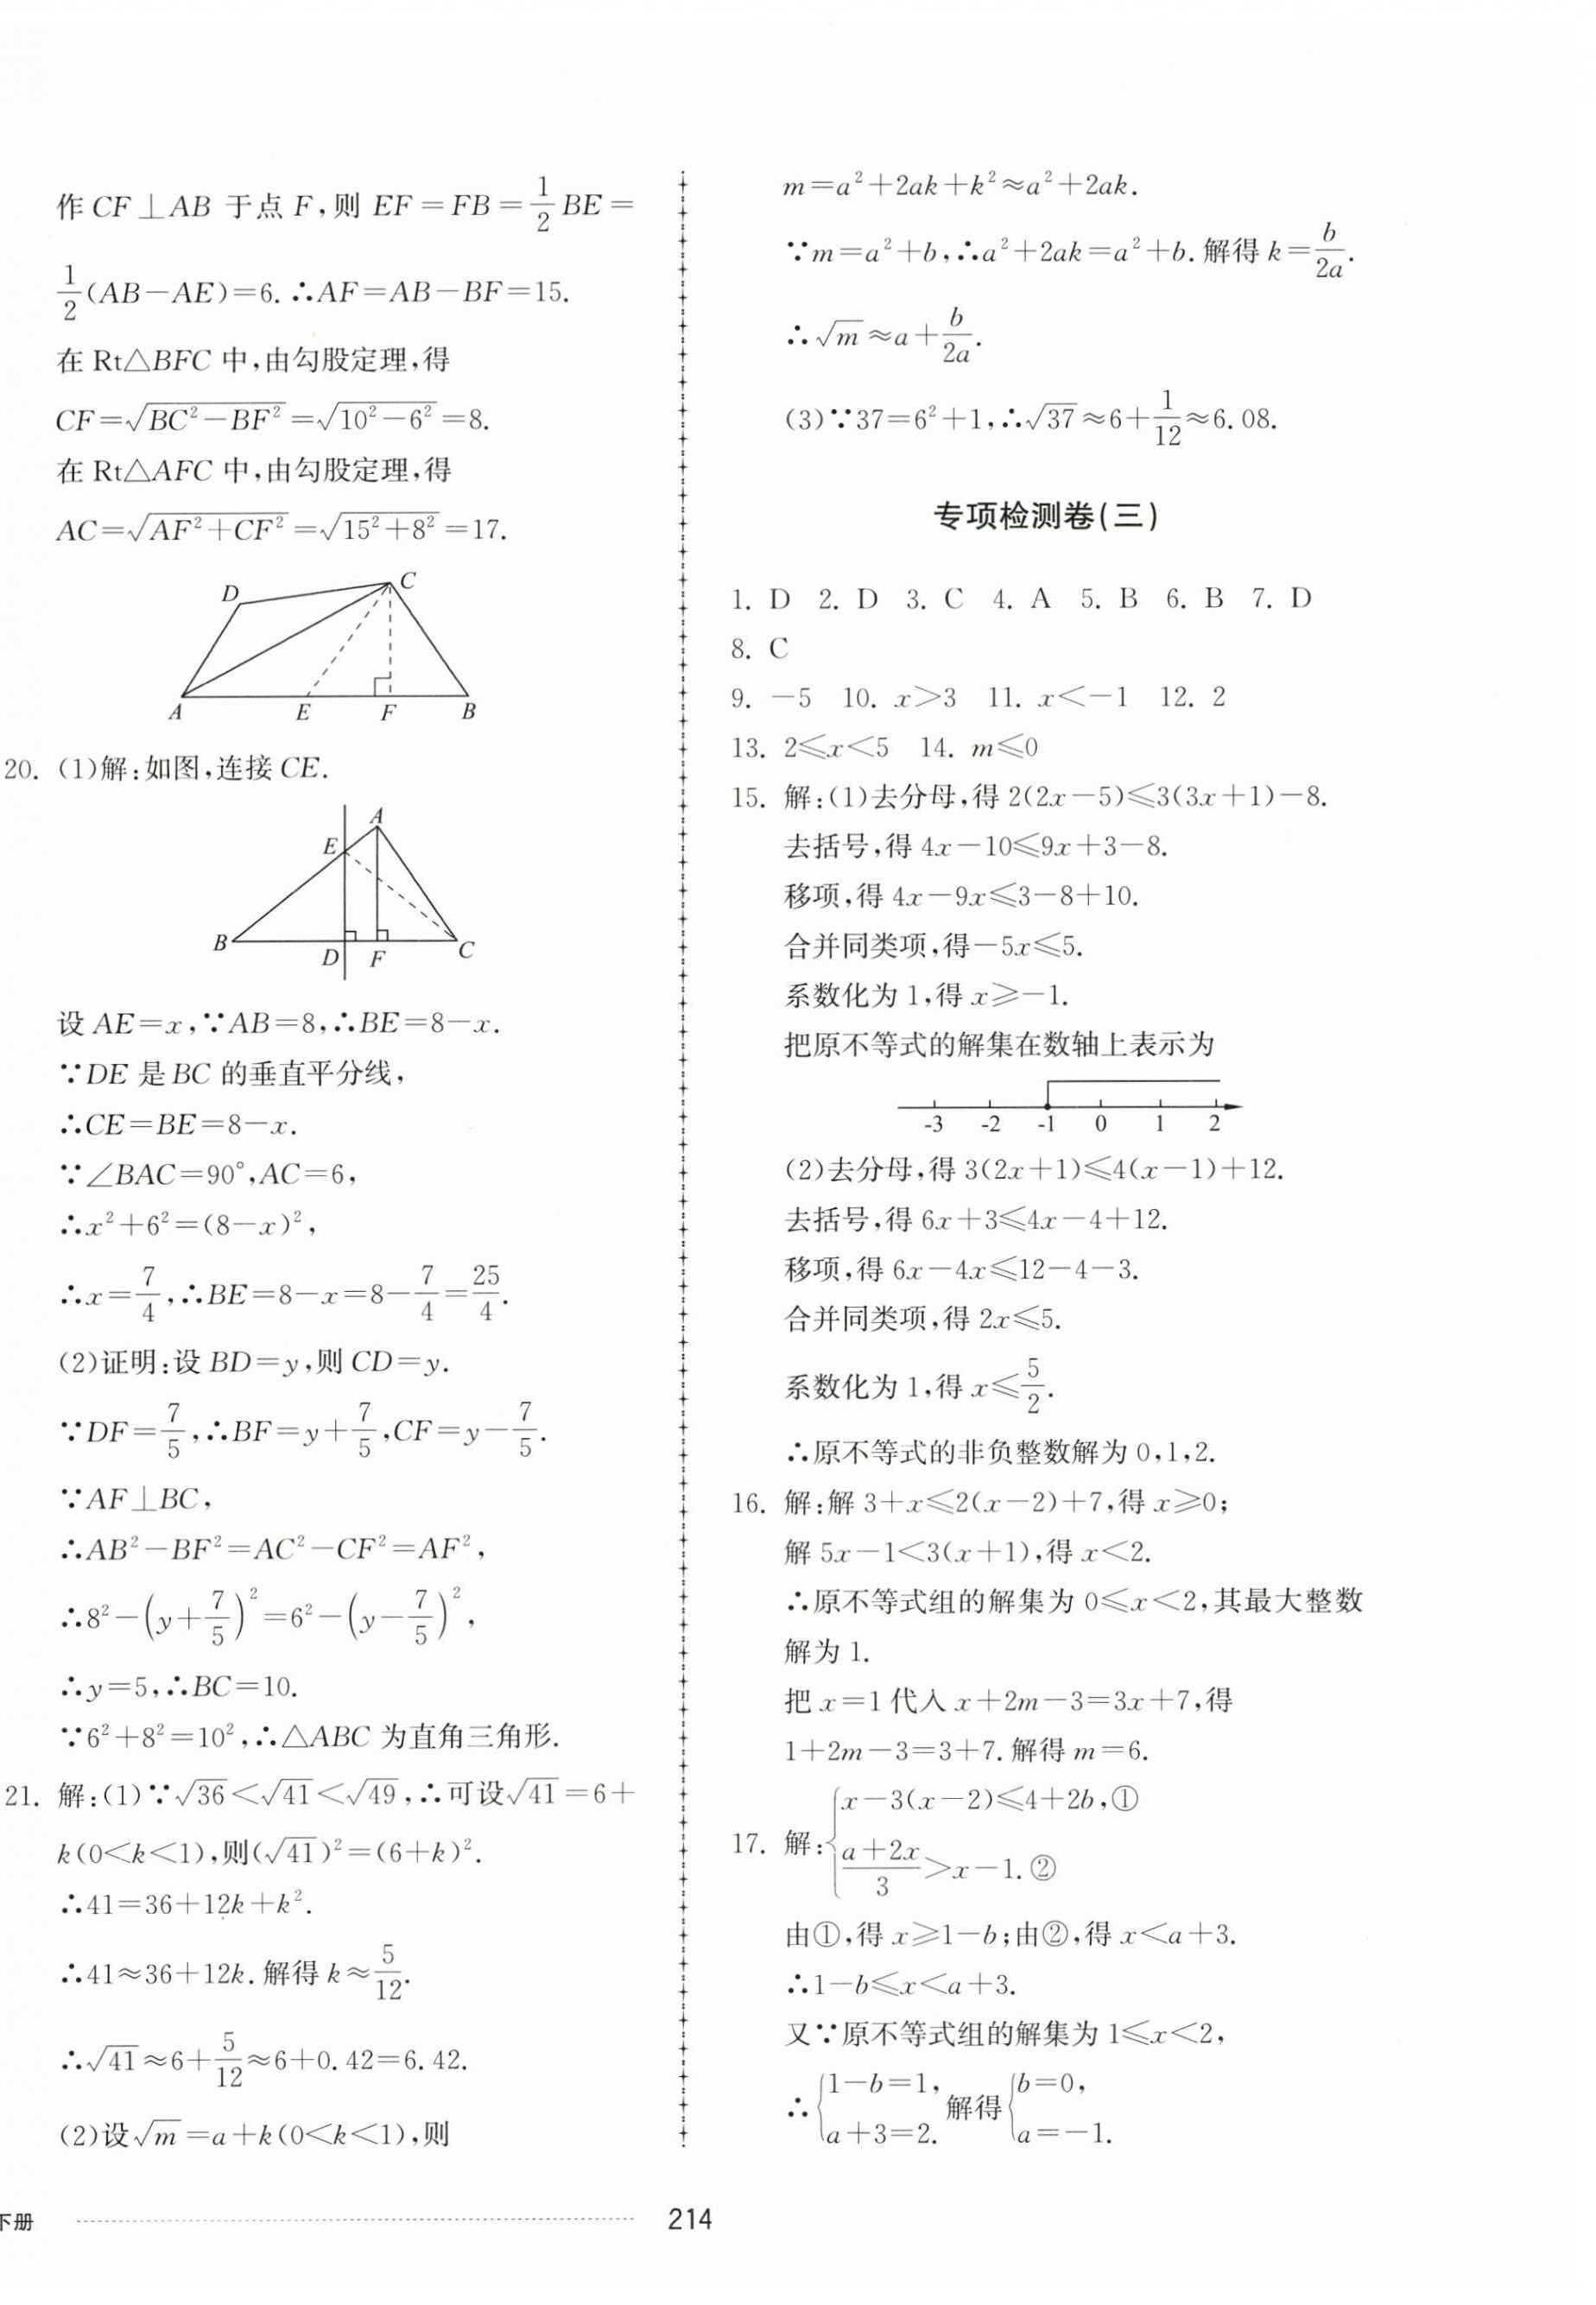 作 CF⊥AB 于点 F,则 EF=FB=1/2 BE=
1/2(AB-AE)=6. ∴AF=AB-BF=15.
在 Rt△BFC 中,由勾股定理,得
CF=√(BC²-BF²)=√(10²-6²)=8.
在 Rt△AFC 中,由勾股定理,得
AC=√(AF²+CF²)=√(15²+8²)=17.
D C
A E F B
20. (1)解:如图,连接 CE.
A
E
B D F C
设 AE=x,∵AB=8,∴BE=8-x.
∵DE 是 BC 的垂直平分线,
∴CE=BE=8-x.
∵∠BAC=90°,AC=6,
∴x²+6²=(8-x)²,
∴x=7/4,∴BE=8-x=8-7/4=25/4.
(2)证明:设 BD=y,则 CD=y.
∵DF=7/5,∴BF=y+7/5,CF=y-7/5.
∵AF⊥BC,
∴AB²-BF²=AC²-CF²=AF²,
∴8²-(y+7/5)²=6²-(y-7/5)²,
∴y=5,∴BC=10.
∵6²+8²=10²,∴△ABC 为直角三角形.
21. 解:(1)∵√36<√41<√49,∴可设√41=6+
k(0<k<1),则(√41)²=(6+k)².
∴41=36+12k+k².
∴41≈36+12k. 解得 k≈5/12.
∴√41≈6+5/12≈6+0.42=6.42.
(2)设√m=a+k(0<k<1),则
m=a²+2ak+k²≈a²+2ak.
∵m=a²+b,∴a²+2ak=a²+b. 解得 k=b/2a.
∴√m≈a+b/2a.
(3)∵37=6²+1,∴√37≈6+1/12≈6.08.
专项检测卷(三)
1. D 2. D 3. C 4. A 5. B 6. B 7. D
8. C
9. -5 10. x>3 11. x<-1 12. 2
13. 2⩽x<5 14. m⩽0
15. 解:(1)去分母,得 2(2x-5)⩽3(3x+1)-8.
去括号,得 4x-10⩽9x+3-8.
移项,得 4x-9x⩽3-8+10.
合并同类项,得-5x⩽5.
系数化为 1,得 x⩾-1.
把原不等式的解集在数轴上表示为
-3 -2 -1 0 1 2
(2)去分母,得 3(2x+1)⩽4(x-1)+12.
去括号,得 6x+3⩽4x-4+12.
移项,得 6x-4x⩽12-4-3.
合并同类项,得 2x⩽5.
系数化为 1,得 x⩽5/2.
∴原不等式的非负整数解为 0,1,2.
16. 解:解 3+x⩽2(x-2)+7,得 x⩾0;
解 5x-1<3(x+1),得 x<2.
∴原不等式组的解集为 0⩽x<2,其最大整数
解为 1.
把 x=1 代入 x+2m-3=3x+7,得
1+2m-3=3+7. 解得 m=6.
17. 解:{x-3(x-2)⩽4+2b,①
(a+2x)/3>x-1.②
由①,得 x⩾1-b;由②,得 x<a+3.
∴1-b⩽x<a+3.
又∵原不等式组的解集为 1⩽x<2,
∴{1-b=1, a+3=2. 解得{b=0, a=-1.
下册
214